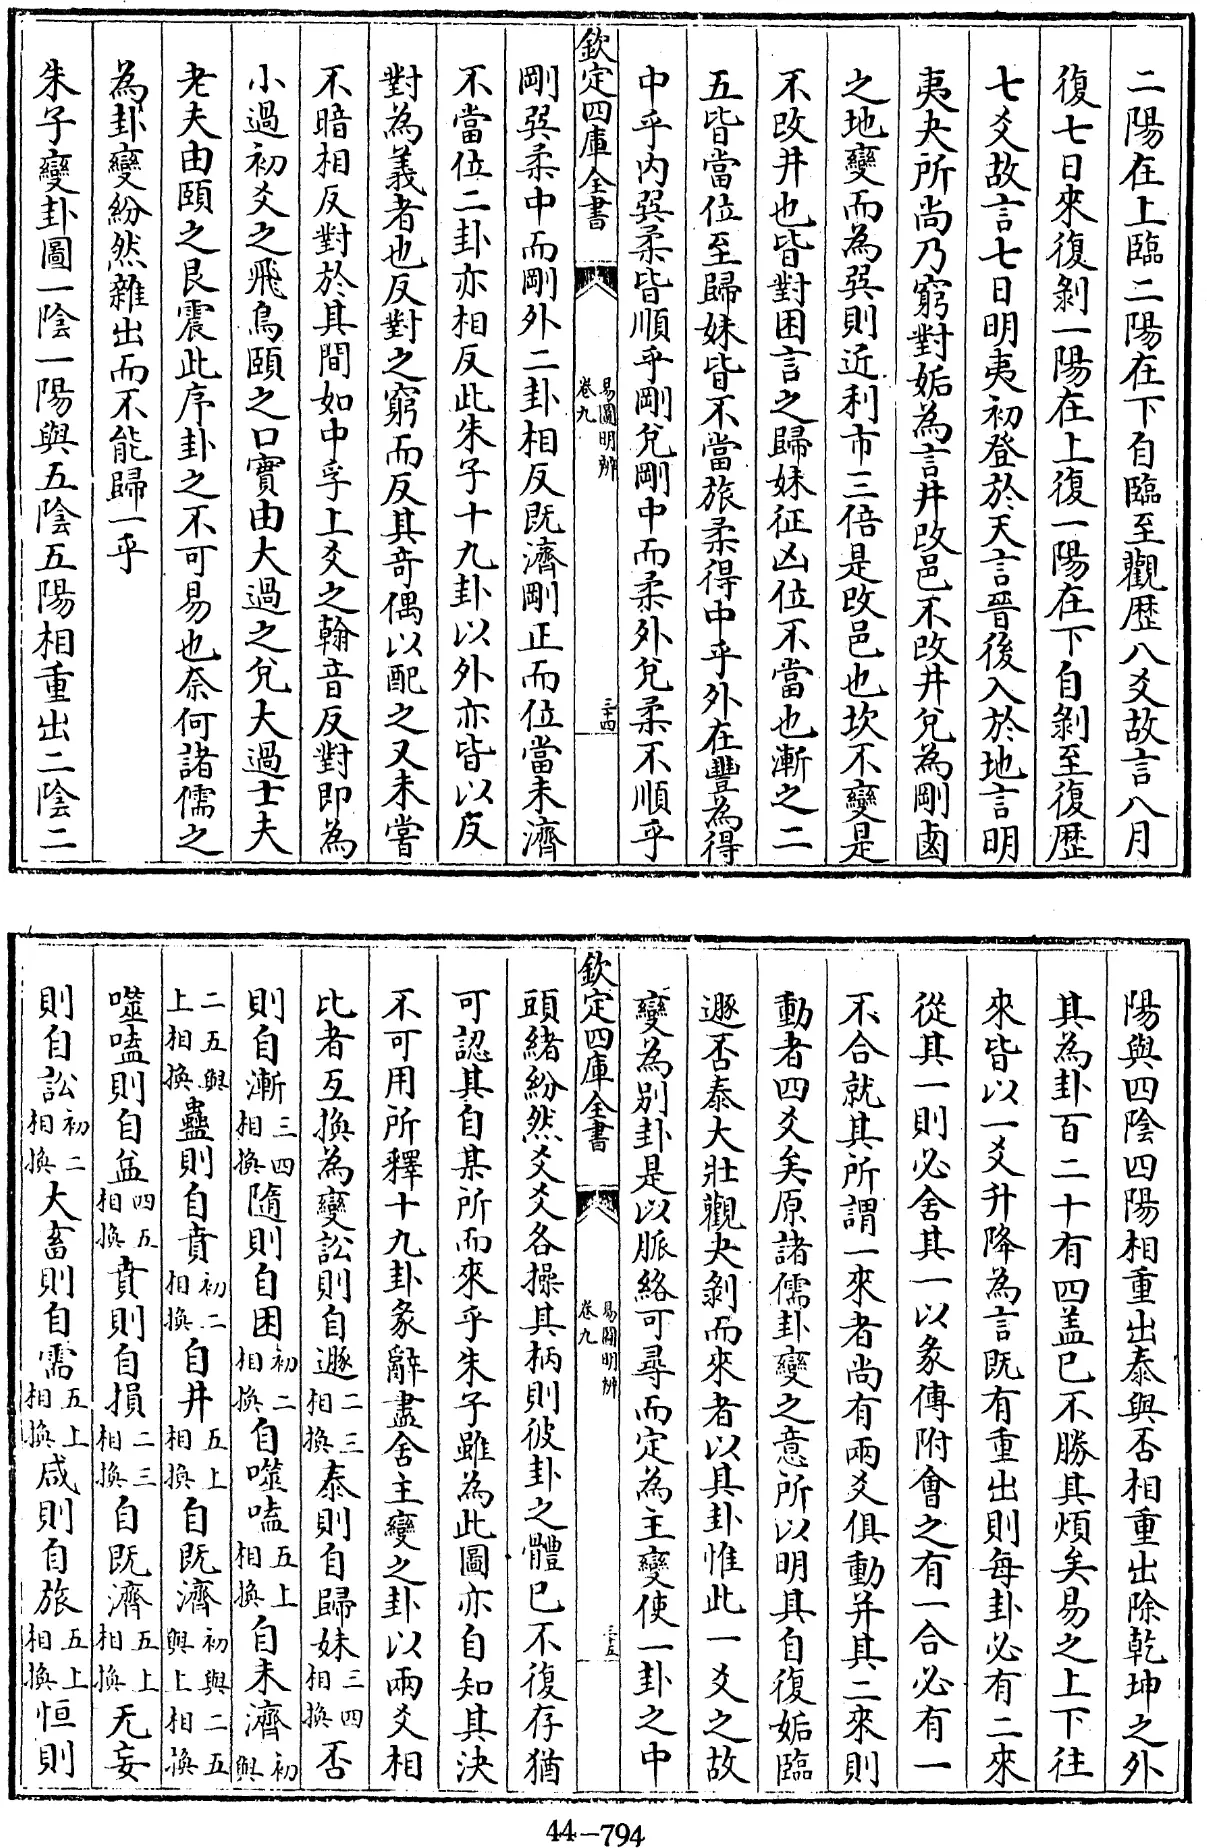 二陽在上臨二陽在下自臨至觀歷八爻故言八月
復七日來復剝一陽在上復一陽在下自剝至復歷
七爻故言七日明夷初登於天言晉後入於地言明
夷夬所尚乃窮對姤為言井改邑不改井兌為剛鹵
之地變而為巽則近利市三倍是改邑也坎不變是
不改井也皆對困言之歸妹征凶位不當也漸之二
五皆當位至歸妹皆不當旅柔得中乎外在豐為得
中乎內巽柔皆順乎剛兌剛中而柔外兌柔不順乎
欽定四庫全書
易圖明辨
卷九
三十四
剛巽柔中而剛外二卦相反既濟剛正而位當未濟
不當位二卦亦相反此朱子十九卦以外亦皆以反
對為義者也反對之窮而反其奇偶以配之又未嘗
不暗相反對於其間如中孚上爻之翰音反對即為
小過初爻之飛鳥頤之口實由大過之兌大過士夫
老夫由頤之艮震此序卦之不可易也奈何諸儒之
為卦變紛然雜出而不能歸一乎
朱子變卦圖一陰一陽與五陰五陽相重出二陰二
陽與四陰四陽相重出泰與否相重出除乾坤之外
其為卦百二十有四蓋已不勝其煩矣易之上下往
來皆以一爻升降為言既有重出則每卦必有二來
從其一則必舍其一以彖傳附會之有一合必有一
不合就其所謂一來者尚有兩爻俱動并其二來則
動者四爻矣原諸儒卦變之意所以明其自復姤臨
遯否泰大壯觀夬剝而來者以其卦惟此一爻之故
變為別卦是以脈絡可尋而定為主變使一卦之中
欽定四庫全書
易圖明辨
卷九
三十五
頭緒紛然爻爻各操其柄則彼卦之體已不復存猶
可認其自某所而來乎朱子雖為此圖亦自知其決
不可用所釋十九卦彖辭盡舍主變之卦以兩爻相
比者互換為變訟則自遯二三相換泰則自歸妹三四相換否
則自漸三四相換隨則自困初二相換自噬嗑五上相換自未濟初與
二五與上相換蠱則自賁初二相換自井五上相換自既濟初與二五與上相換
噬嗑則自益四五相換賁則自損二三相換自既濟五上相換无妄
則自訟初二相換大畜則自需五上相換咸則自旅五上相換恒則
44-794